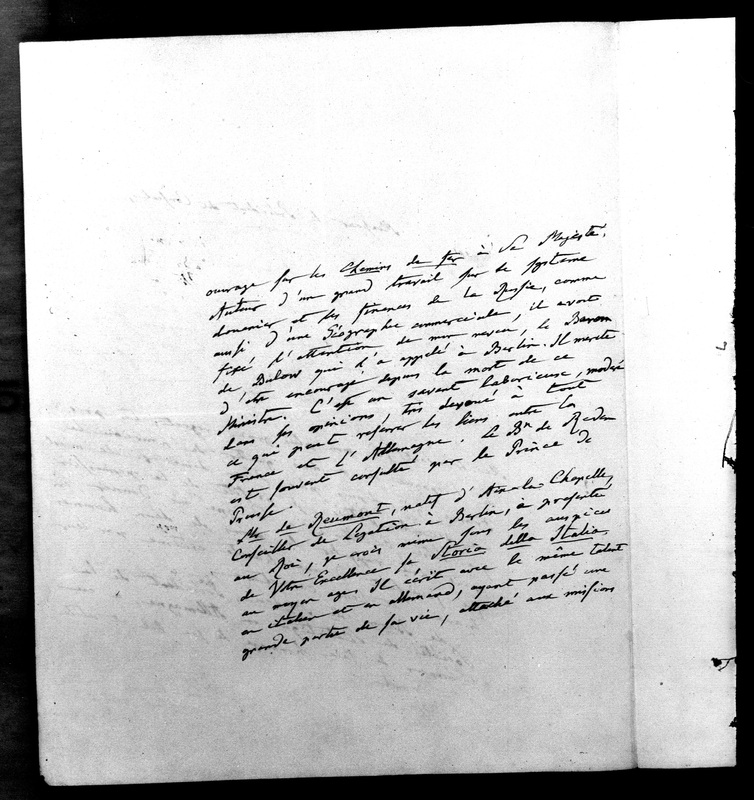 ouvrage sur les Chemins de fer à Sa Majesté.
Auteur d'un grand travail sur le systeme
domanier et les finances de la Russie, comme
aussi d'une Géographie commerciale, il avoit
fixé l'attention de mon neveu, le Baron
de Bulow qui l'a appelé à Berlin. Il merite
d'etre encouragé depuis la mort de ce
Ministre. C'est un savant laborieux, modéré
dans ses opinions, très devoué à tout
ce qui peut resserrer les liens entre la
France et l'Allemagne. Le Bn de Reden
est souvent consulté par le Prince de
Prusse.
Mr de Reumont, natif d'Aix-la-Chapelle,
Conseiller de Legation à Berlin, a presenté
au Roi, je crois meme sous les auspices
de Votre Excellence sa Storia della Italia
au moyen ages. Il écrit avec le même talent
en italien et en allemand, ayant passé une
grande partie de sa vie, attaché aux missions